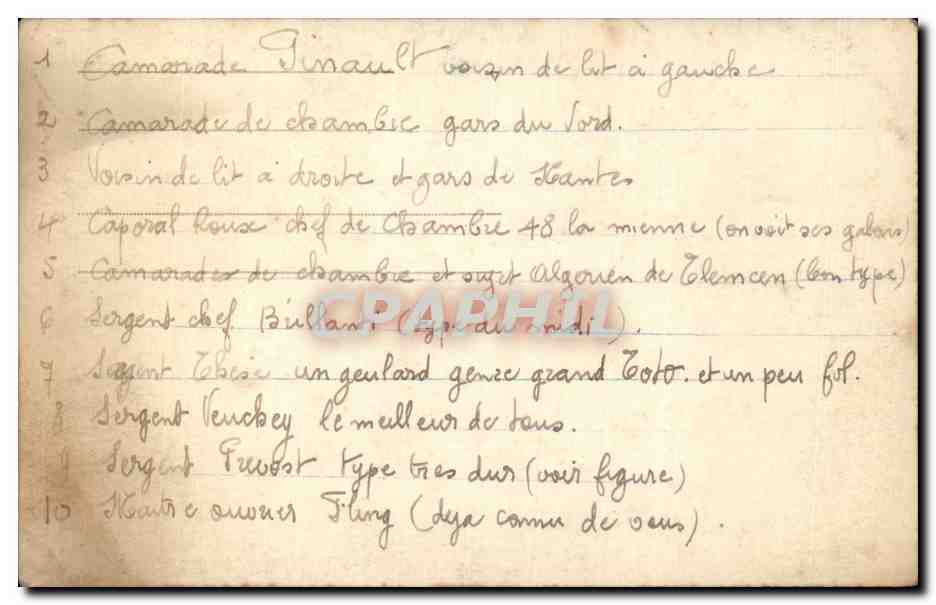 1 Camarade Pinault voisin de lit a gauche
2 Camarade de chambre gars du Nord.
3 Voisin de lit a droite et gars de Nantes
4 Caporal Roux chef de chambre 48 la mienne (on voit ses galons)
5 Camarades de chambre et sujet Algerien de Tlemcen (bon type)
6 Sergent chef. Brillant (type du midi).
CPAPHIL
7 Sergent un geulard genre grand Toto. et un peu fol.
8 Sergent Venckey le meilleur de tous.
9 Sergent Prevost type tres dur (voir figure)
10 Maitre ouvrier Fling (deja connu de vous).